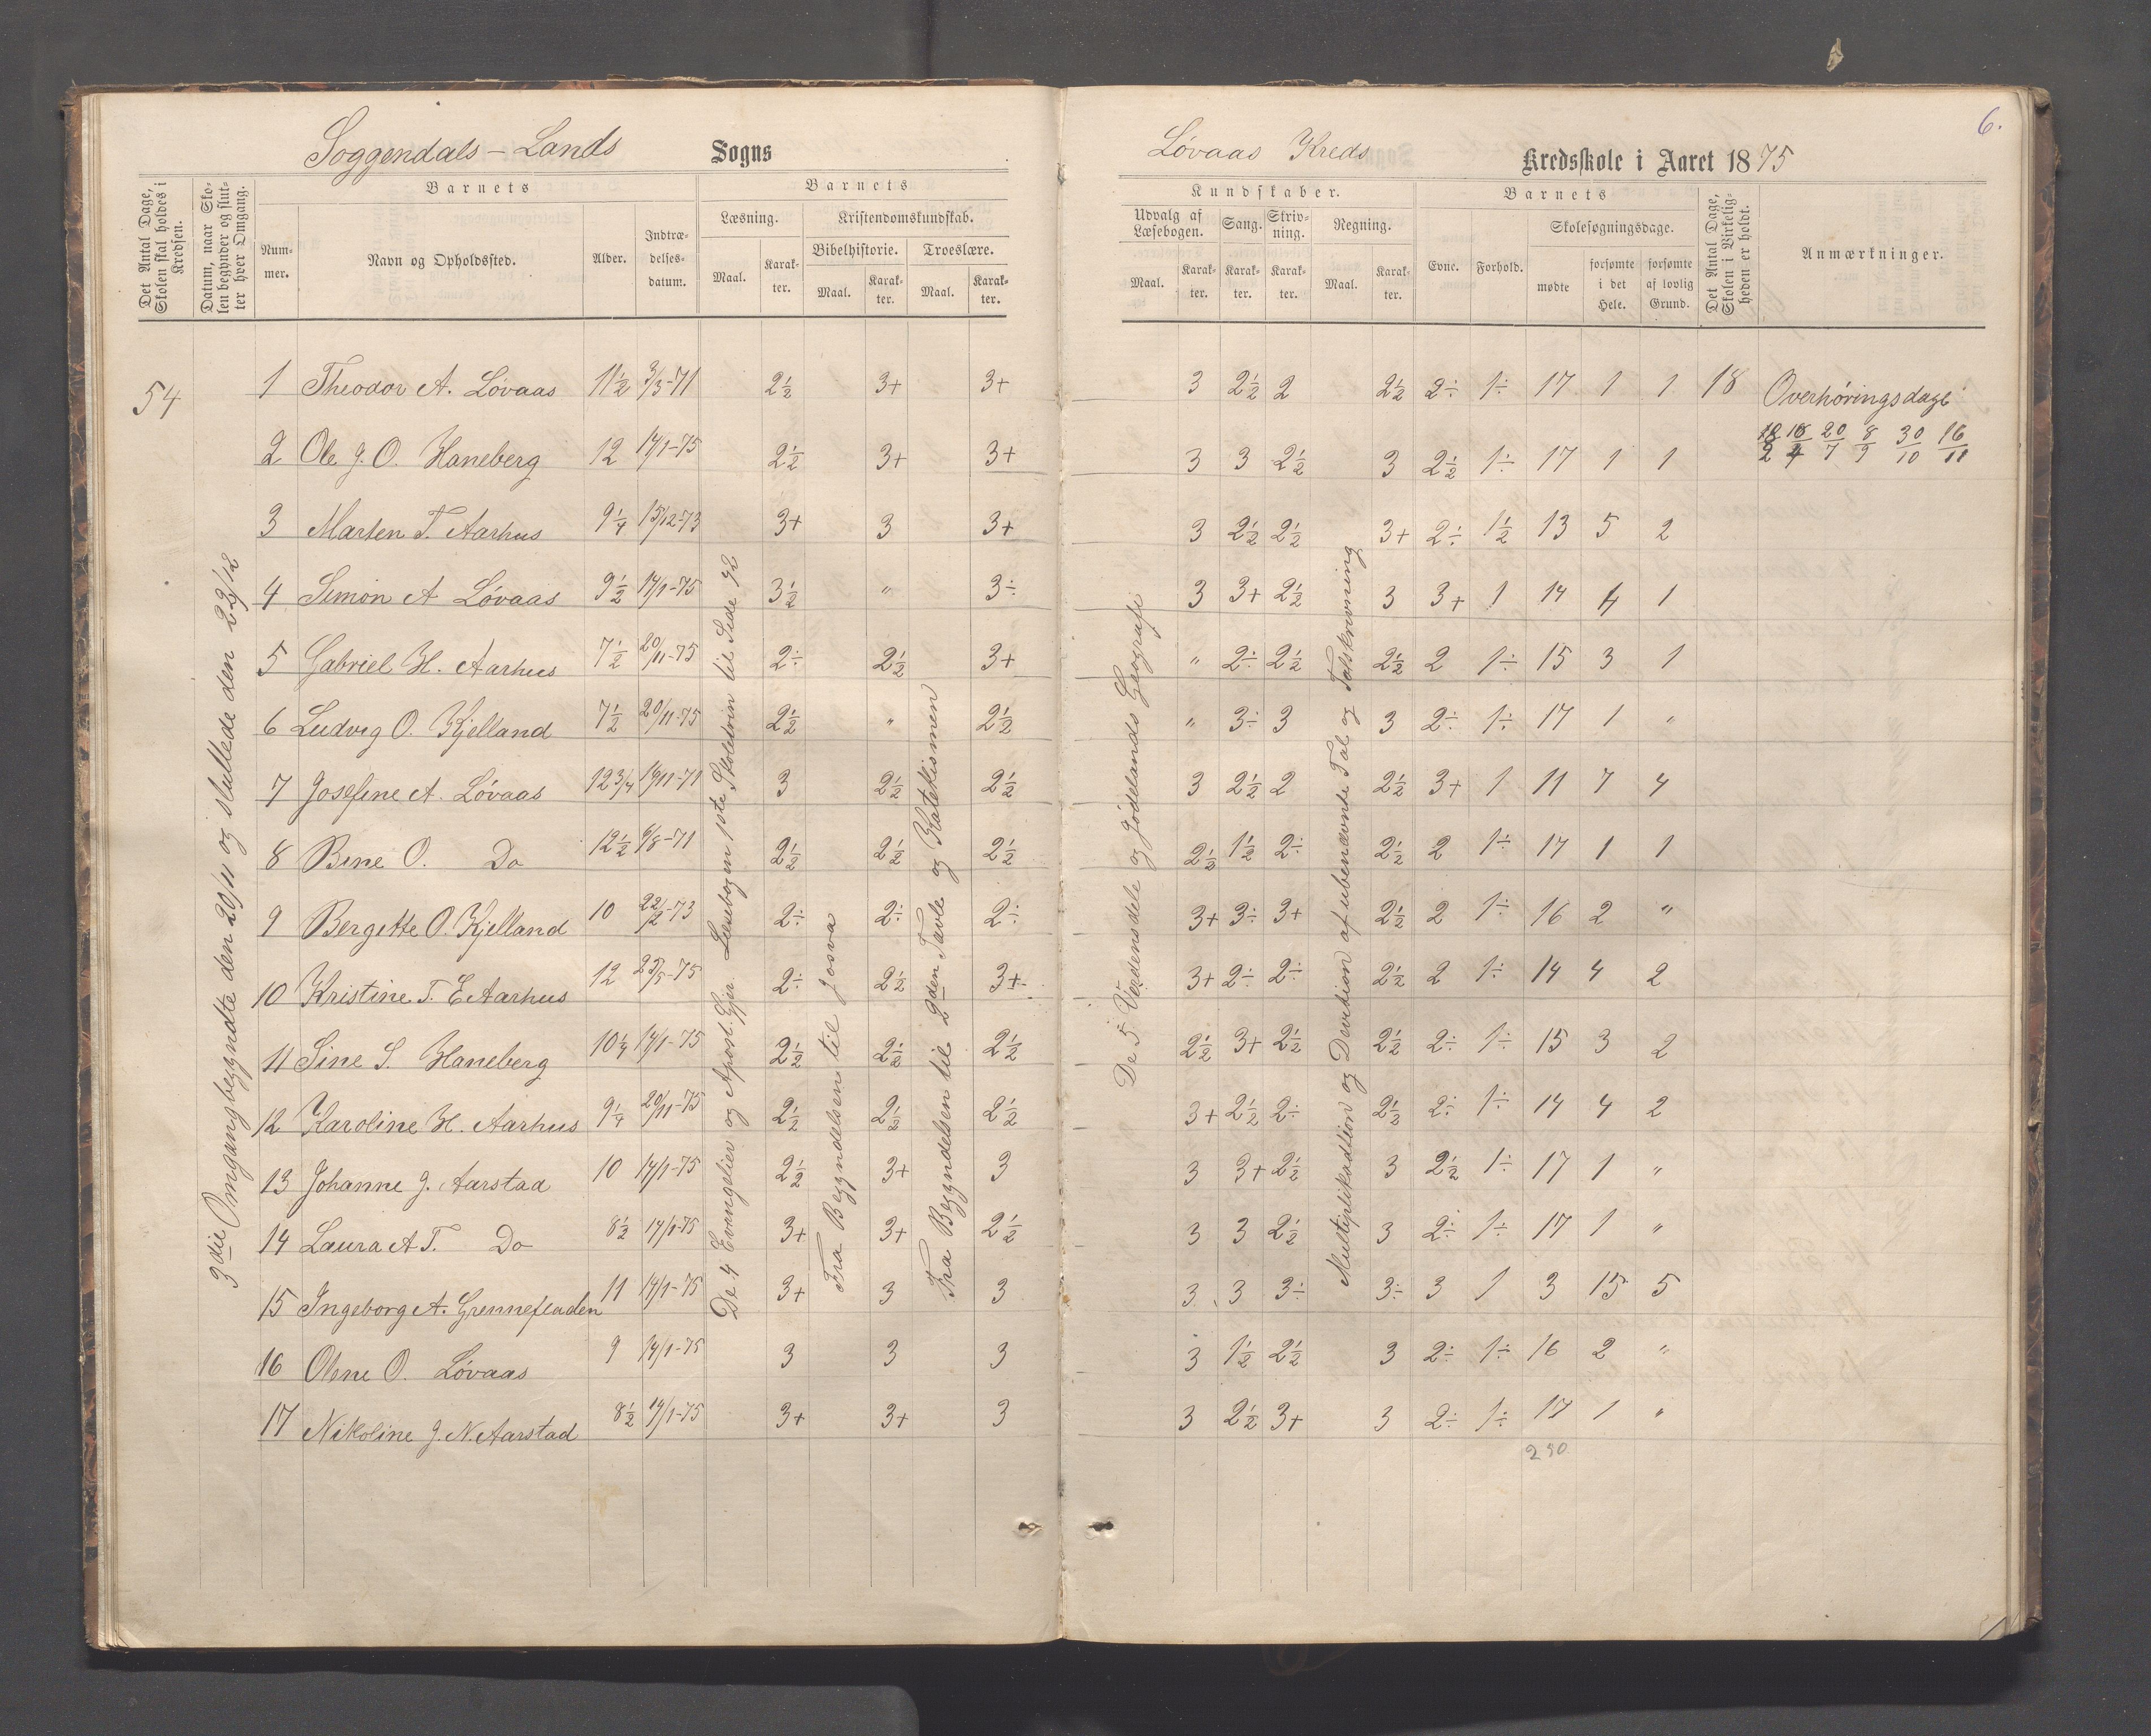 Soggendals-Lands Sogns
Løvaas Kreds Kredsskole i Aaret 1875
6.
Det Antal Dage, Skolen skal holdes i Kredsen.
Datum, naar Skolen begynder og slutter hver Omgang.
Barnets
Nummer.
Navn og Opholdssted.
Alder.
Indtrædelsesdatum.
Barnets
Læsning.
Maal.
Karakter.
Kristendomskundskab.
Bibelhistorie.
Maal.
Karakter.
Troeslære.
Maal.
Karakter.
Kundskaber.
Udvalg af Læsebogen.
Maal.
Karakter.
Sang.
Karakter.
Skrivning.
Karakter.
Regning.
Maal.
Karakter.
Barnets
Evne.
Forhold.
Skolesøgningsdage.
mødte
forsømte i det Hele.
forsømte af lovlig Grund.
Det Antal Dage, Skolen i Virkeligheden er holdt.
Anmærkninger.
54
3die Omgang begyndte den 20/11 og sluttede den 22/12
De 4 Evangelier og Apost. Gjer. Læsebogen 1ste Skoletrin til Side 92
Fra Begyndelsen til Josva
Fra Begyndelsen til 2den Tavle og Katekismen
De 5 Verdensdele og Jødelands Geografi
Multiplikadtion og Devition af ubenævnte Tal og Talskrivning
1 Theodor A. Løvaas 11½ 3/3-71 2½ 3+ 3+ 3 2½ 2 2½ 2÷ 1÷ 17 1 1 18 Overhøringsdage
18/2 18/4 20/7 8/9 30/10 16/11
2 Ole G. O. Haneberg 12 14/1-75 2½ 3+ 3+ 3 3 2½ 3 2½ 1÷ 17 1 1
3 Marten T. Aarhus 9¼ 15/12-73 3+ 3 3+ 3 2½ 2½ 3+ 2÷ 1½ 13 5 2
4 Simon A Løvaas 9½ 14/1-75 3½ " 3÷ 3 3+ 2½ 3 3+ 1 14 4 1
5 Gabriel H. Aarhus 7½ 20/11-75 2÷ 2½ 3+ " 2÷ 2½ 2½ 2 1÷ 15 3 1
6 Ludvig O. Kjelland 7½ 20/11-75 2½ " 2½ " 3÷ 3 3 2÷ 1÷ 17 1 "
7 Josefine A. Løvaas 12¾ 19/11-71 3 2½ 2½ 3 2½ 2 2½ 3+ 1 11 7 4
8 Bine O. Do 12½ 9/8-71 2½ 2½ 2½ 2½ 1½ 2÷ 2½ 2 1÷ 17 1 1
9 Bergitte O. Kjelland 10 22/2-73 2÷ 2÷ 2÷ 3+ 3÷ 3+ 2½ 2 1÷ 16 2 "
10 Kristine T. E Aarhus 12 25/5-75 2÷ 2½ 3+ 3+ 2÷ 2÷ 2½ 2 1÷ 14 4 2
11 Sine S. Haneberg 10¼ 14/1-75 2½ 2½ 2½ 2½ 3+ 2½ 2½ 2÷ 1÷ 15 3 2
12 Karoline H. Aarhus 9¼ 20/11-75 2½ 2½ 2½ 3+ 2½ 2÷ 2½ 2÷ 1÷ 14 4 2
13 Johanne J. Aarstad 10 14/1-75 2½ 3+ 3 3 3+ 2½ 3 2½ 1÷ 17 1 "
14 Laura A T. Do 8½ 14/1-75 3+ 3+ 2½ 3 3 2½ 3 2÷ 1÷ 17 1 "
15 Ingeborg A. Grennefladen 11 14/1-75 3+ 3 3 3 3 3÷ 3÷ 3 1 3 15 5
16 Oline O. Løvaas 9 14/1-75 3 3 3 3 1½ 2½ 3 2÷ 1÷ 16 2 "
17 Nikoline J. N. Aarstad 8½ 14/1-75 3+ 3+ 3 3 2½ 3+ 3 2÷ 1÷ 17 1 "
250